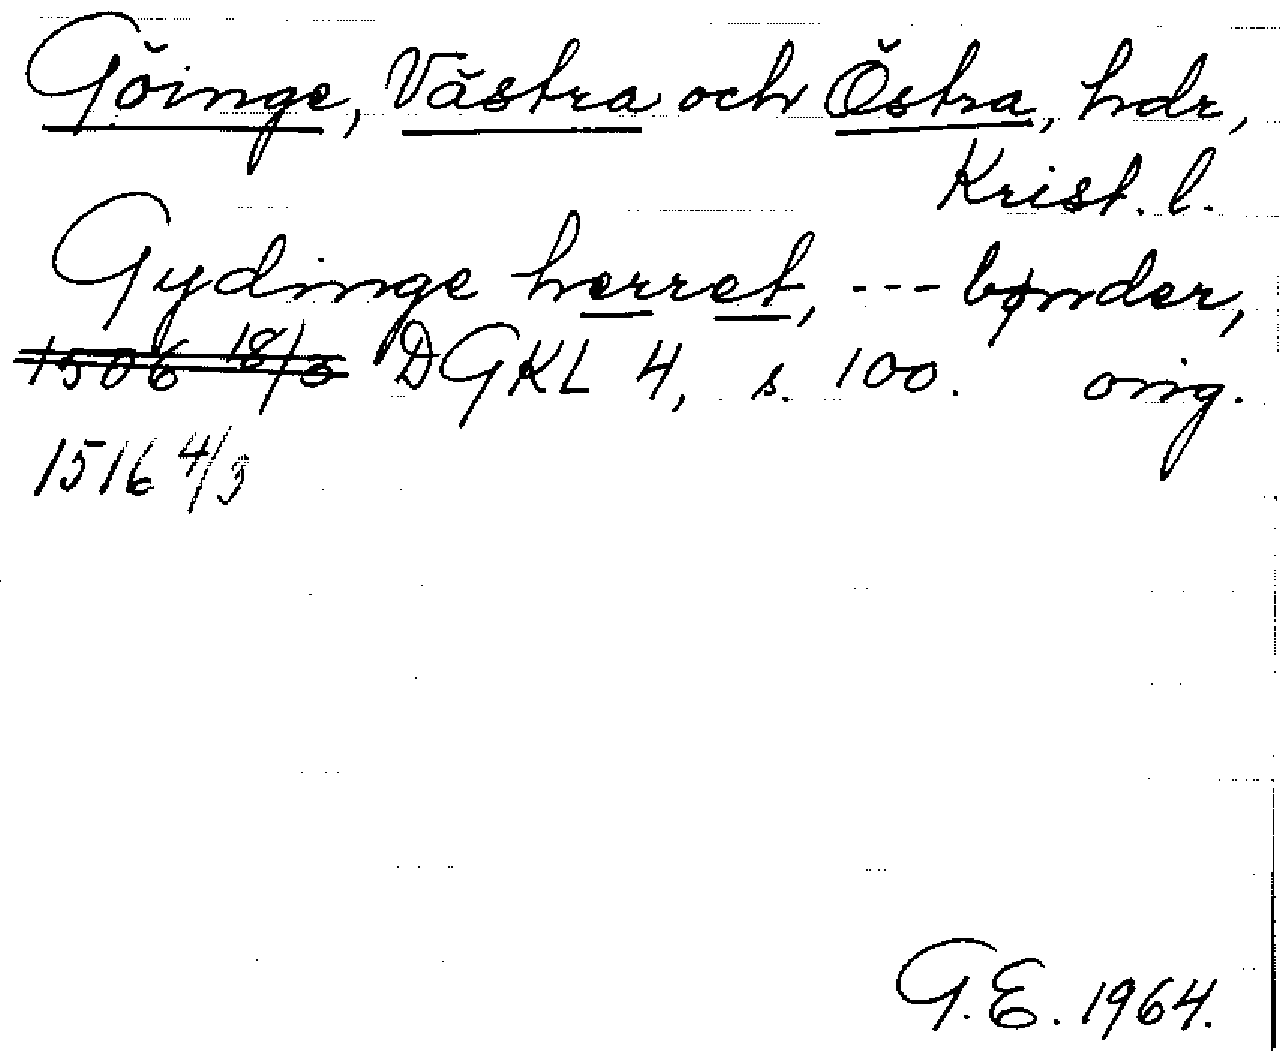 Göinge, Västra och Östra, hdr,
Krist. l.
Gydinge herret, --- bønder,
1506 18/5 DGKL 4, s. 100. orig.
1516 4/3
G.E. 1964.